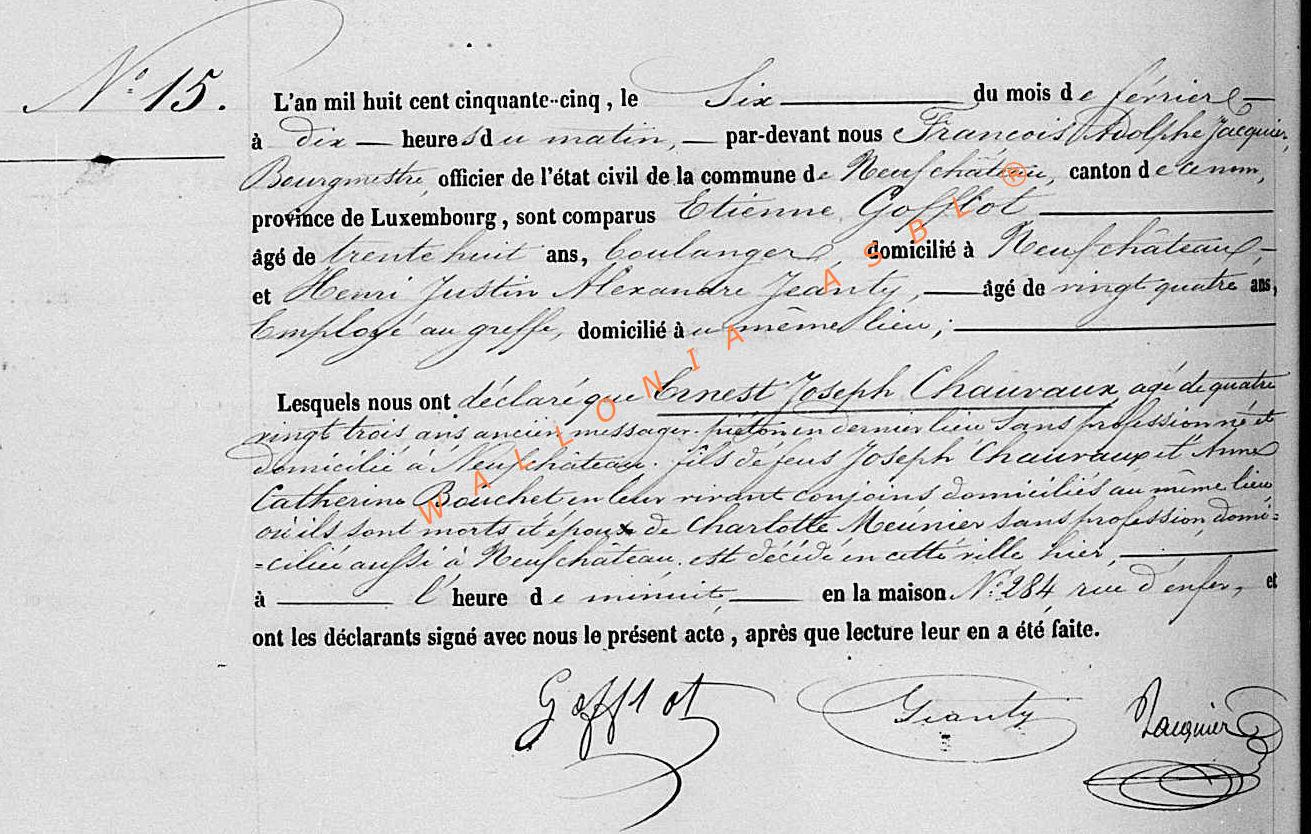 N° 15.
L'an mil huit cent cinquante-cinq, le Six du mois de février
à dix heures du matin, par-devant nous François Adolphe Jacquier,
Bourgmestre, officier de l'état civil de la commune de Neufchâteau, canton de ce nom,
province de Luxembourg, sont comparus Etienne Gofflot
âgé de trente huit ans, boulanger, domicilié à Neufchâteau,
et Henri Justin Alexandre Jeanty, âgé de vingt quatre ans,
Employé au greffe, domicilié au même lieu;
Lesquels nous ont déclaré que Ernest Joseph Chauvaux, agé de quatre
vingt trois ans ancien messager-piéton en dernier lieu sans profession né et
domicilié à Neufchâteau. fils de feus Joseph Chauvaux et Anne
Catherine Bouchet en leur vivant conjoins domiciliés au même lieu
où ils sont morts et époux de Charlotte Meunier sans profession, domi=
=ciliée aussi à Neufchâteau. est décédé en cette ville hier,
à l'heure de minuit, en la maison N° 284 rue d'enfer, et
ont les déclarants signé avec nous le présent acte, après que lecture leur en a été faite.
Gofflot Jeanty Jacquier
WALLONIA ASBL ®